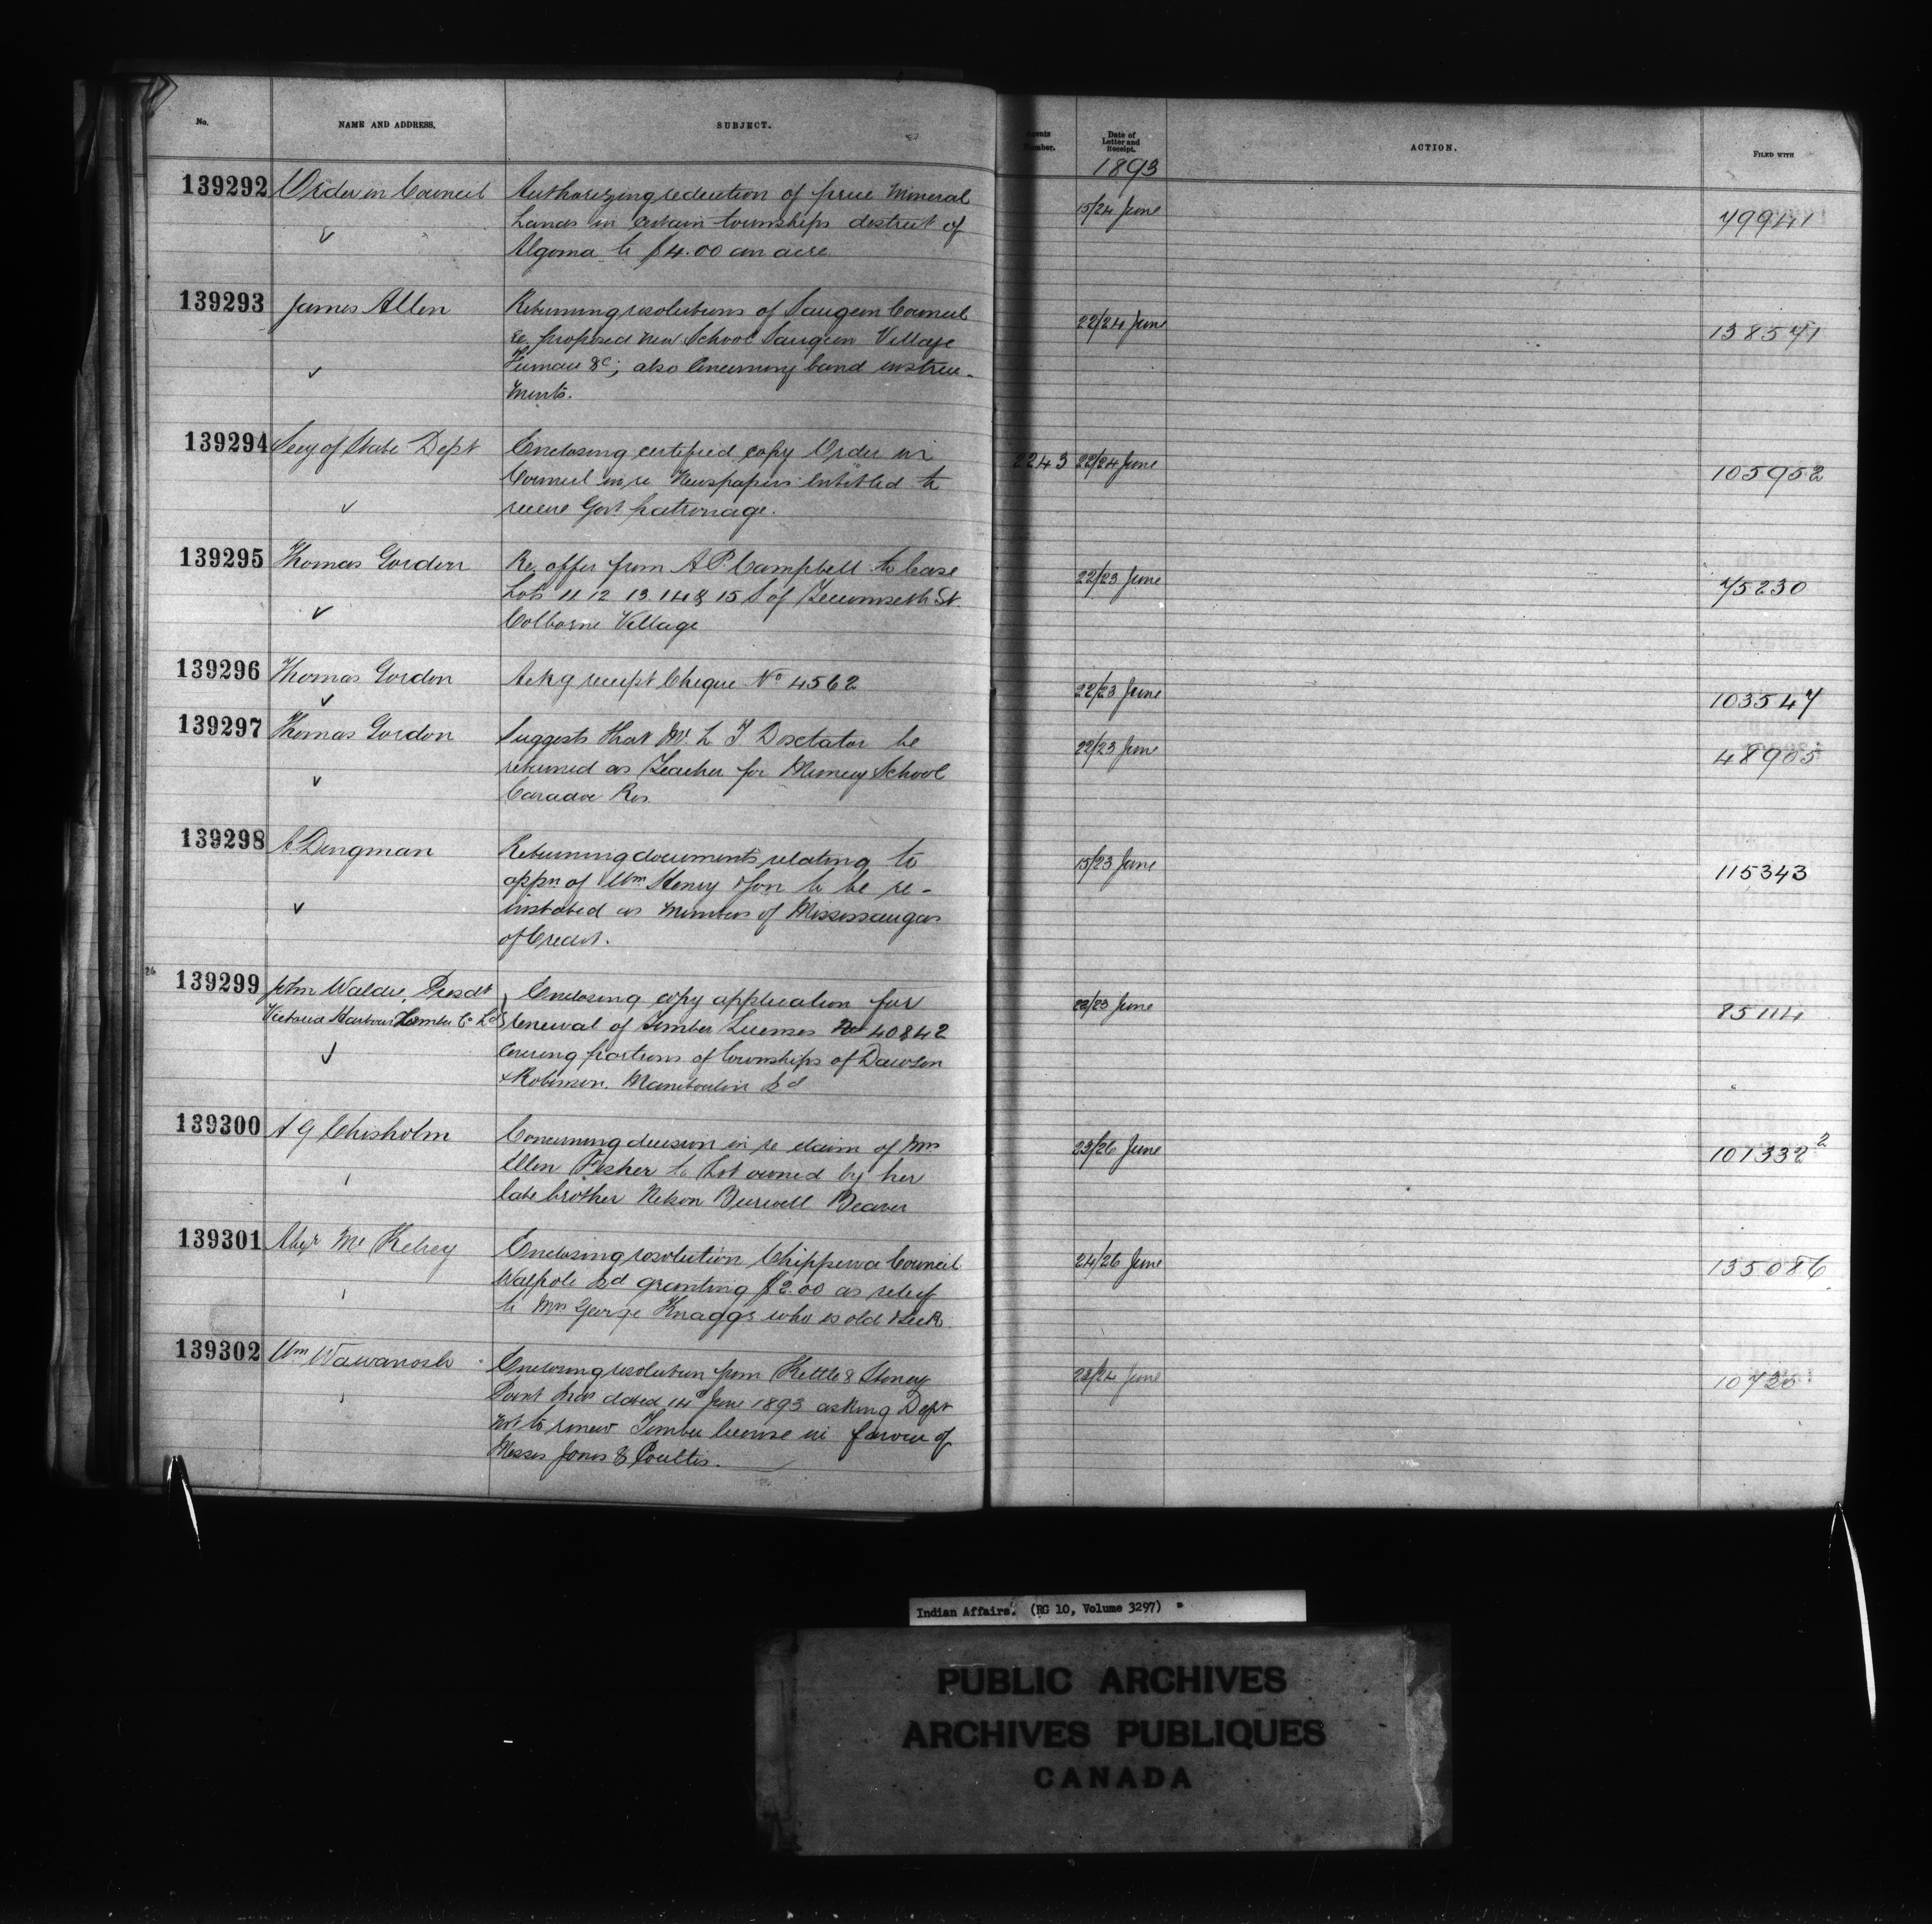 No.
NAME AND ADDRESS.
SUBJECT.
Agents Number.
Date of Letter and Receipt.
ACTION.
FILED WITH
1893
139292 Order in Council Authorizing reduction of price Mineral 15/24 June
Lands in certain townships district of
Algoma to $4.00 an acre
139293 James Allen Returning resolutions of Saugeen Council 22/24 June 138571
re proposed new School Saugeen Village
&c; also Concerning band instru-
ments.
139294 Secy of State Dept Enclosing certified copy Order in 2243 22/24 June 105952
Council in re Newspapers entitled to
receive Govt patronage.
139295 Thomas Gordon Re offer from A P Campbell to lease 22/23 June 75230
Lots 11 12 13 14 & 15 S of Tecumseth St.
Colborne Village
139296 Thomas Gordon Ackg receipt Cheque No 4562 22/23 June 103547
139297 Thomas Gordon Suggests that Mr L T Doxtator be 22/23 June 48905
returned as Teacher for Muncey School
Caradoc Res
139298 A Dingman Returning documents relating to 15/23 June 115343
appn of Wm Henry & son to be re-
instated as members of Mississaugas
of Credit.
26
139299 John Waldie, Presdt Enclosing copy application for 22/23 June 85114
Victoria Harbour Lumber Co Ld Renewal of Timber Licenses No 40 & 42
Covering portions of townships of Dawson
& Robinson. Manitoulin Isd
139300 A G Chisholm Concerning decision in re claim of Mrs 23/26 June 101332 2
Ellen Fisher to Lot owned by her
late brother Nelson Burwell Beaver
139301 Alexr McKelvey Enclosing resolution Chippewa Council 24/26 June 135086
Walpole Isd granting $2.00 as relief
to Mrs George Knaggs who is old & sick.
139302 Wm Wawanosh Enclosing resolution from Kettle & Stoney 23/24 June
Point dated 14 June 1893 asking Dept
not to renew Timber license in favour of
Messrs Jones & Poultis.
Indian Affairs. (RG 10, Volume 3297)
PUBLIC ARCHIVES
ARCHIVES PUBLIQUES
CANADA